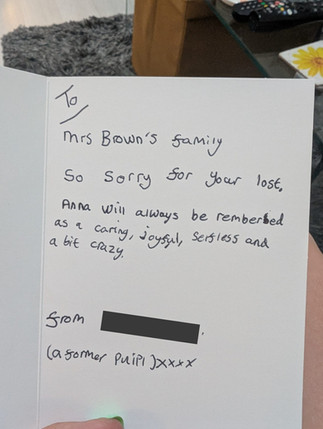 To
Mrs Brown's family
So sorry for your lost,
Anna will always be rembered
as a caring, joyful, selfless and
a bit crazy.
from
(a former puipl)xxxx